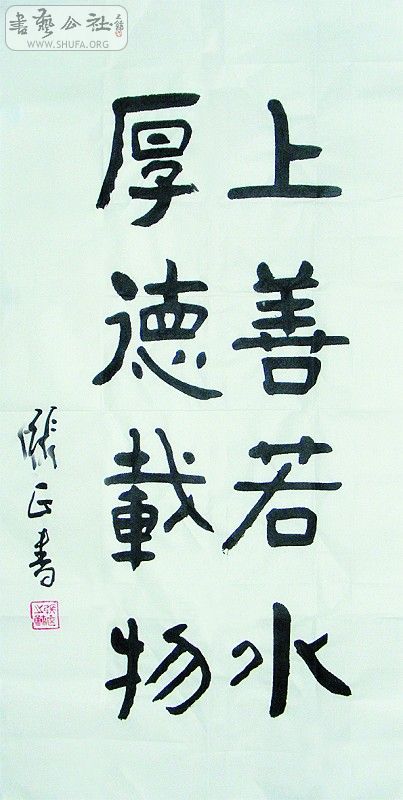 書藝公社
WWW.SHUFA.ORG
上善若水
厚德載物
張正書